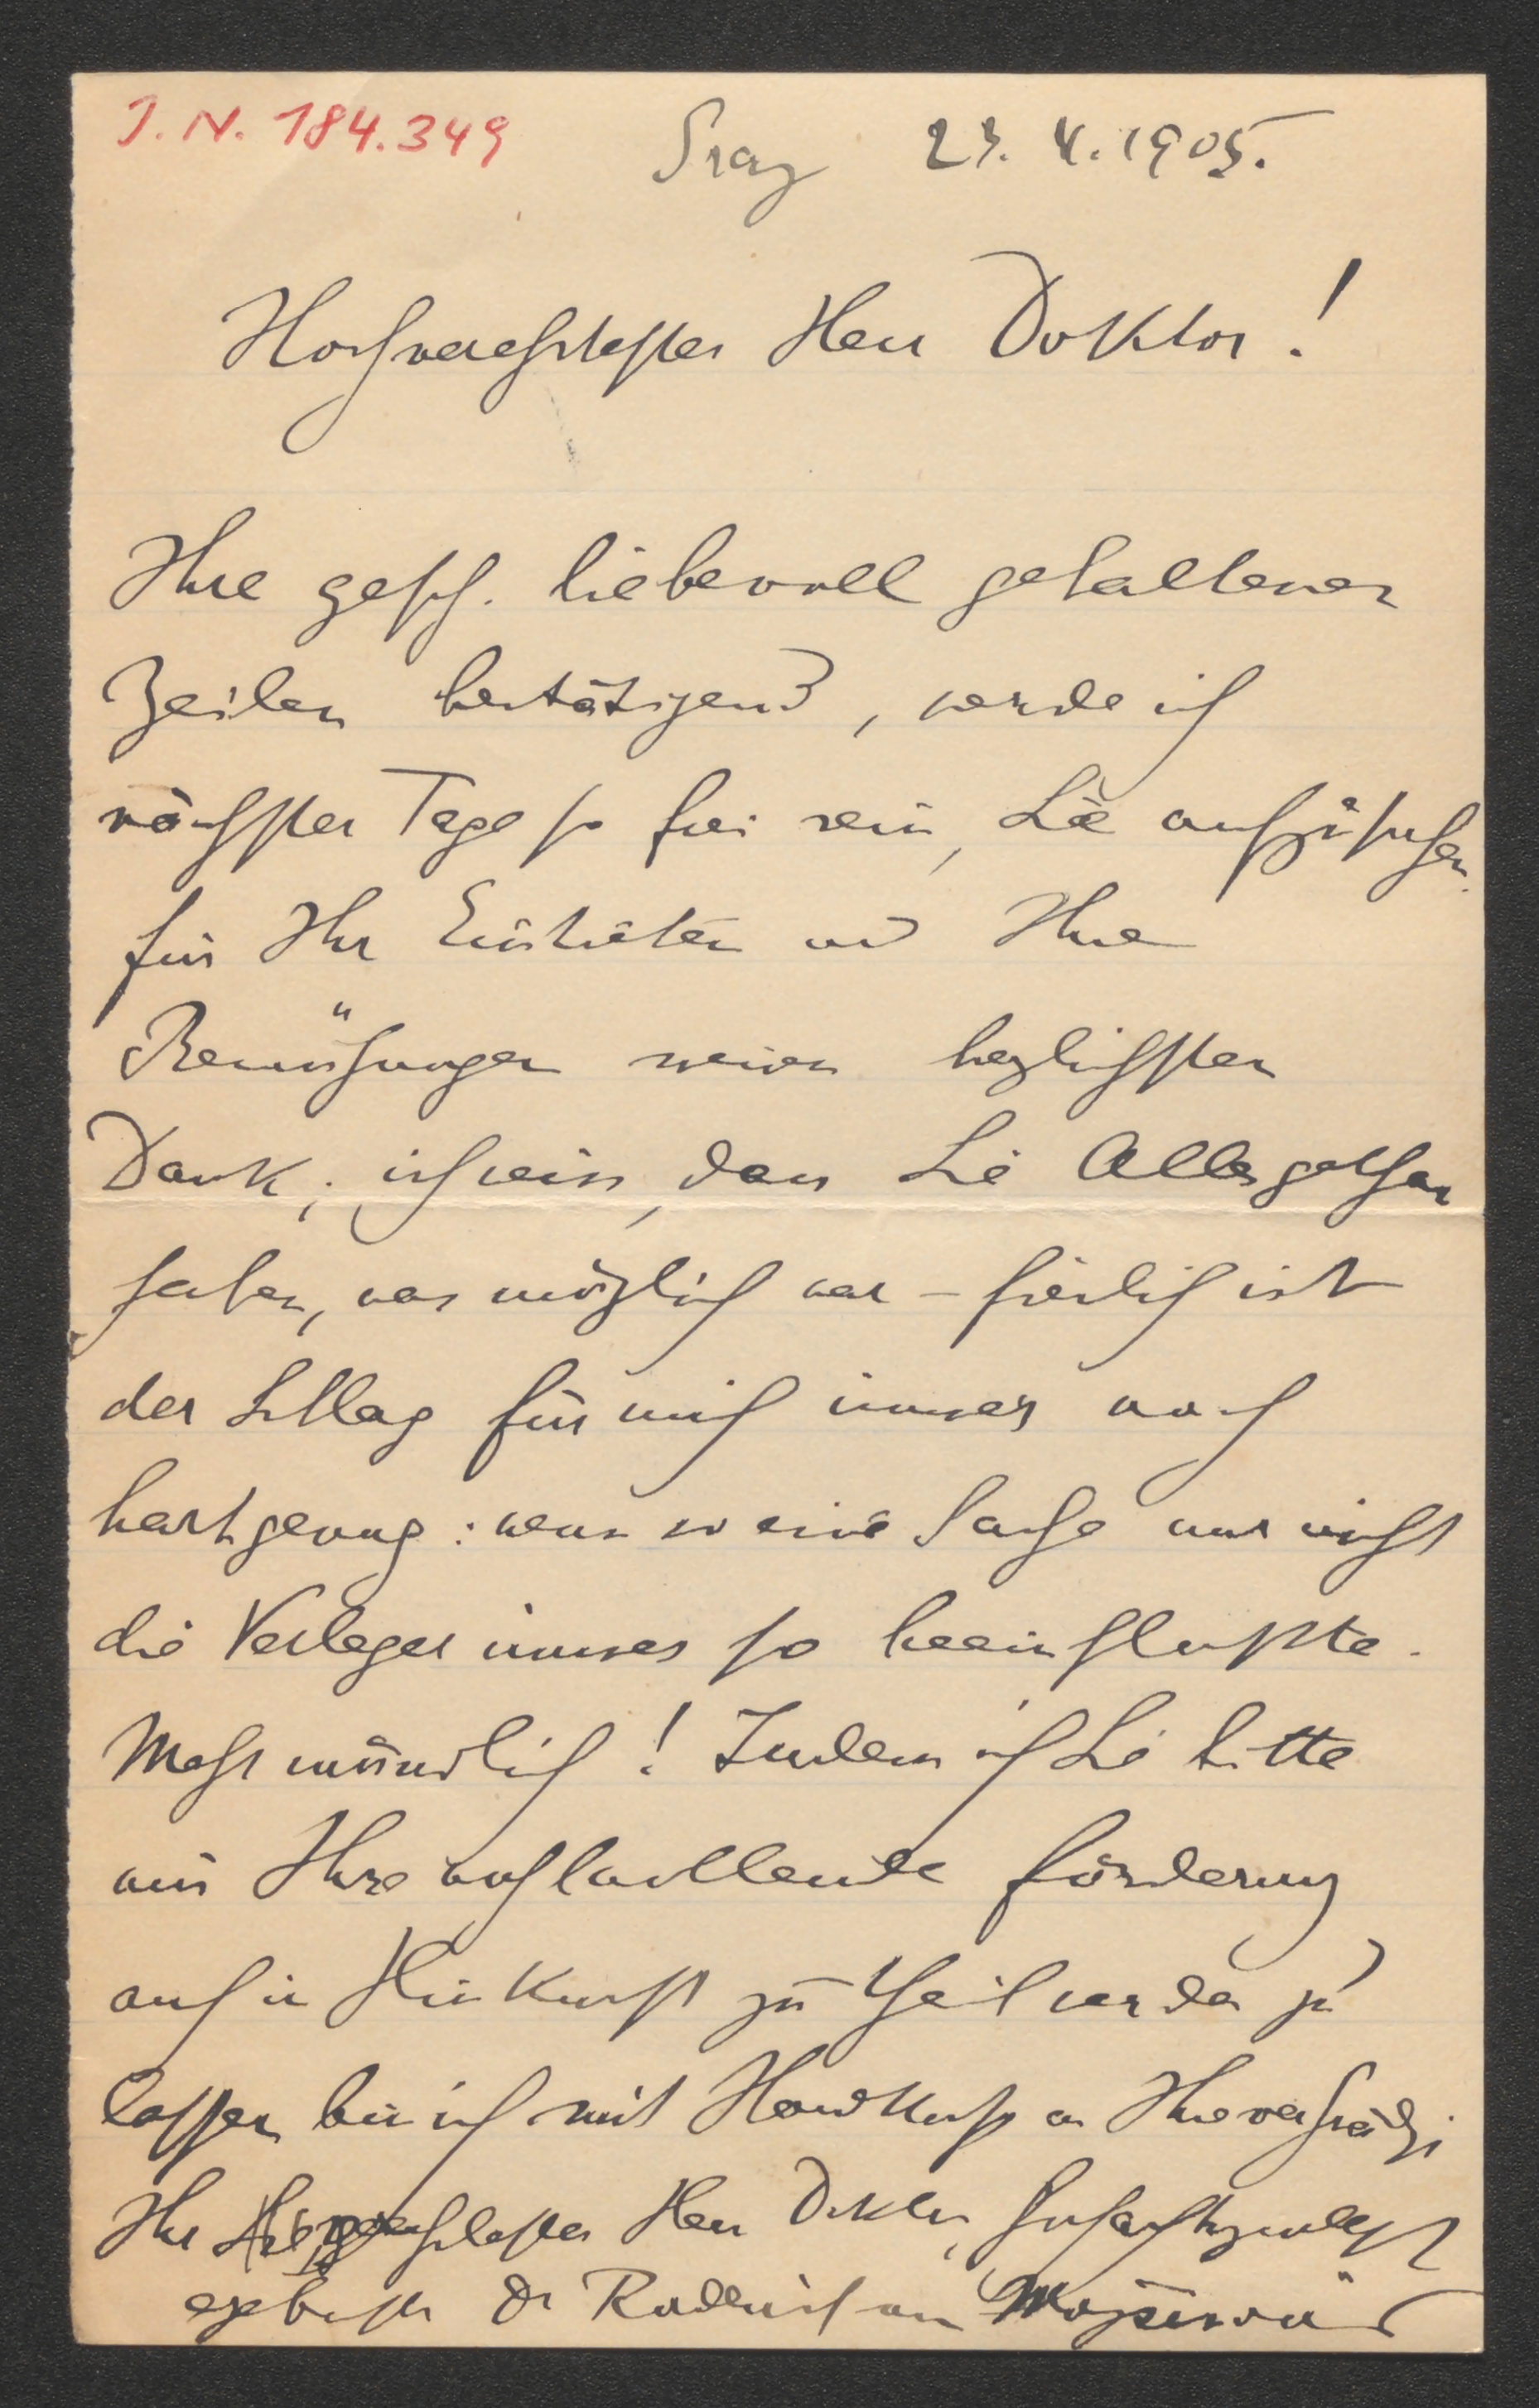 I. N. 184.349
Graz 23. V. 1905.
Hochverehrtester Herr Doktor!
Ihre gesch. liebevoll gehaltenen
Zeilen bestätigend, werde ich
nächster Tage so frei sein, Sie aufzusuchen.
für Ihr Eintreten und Ihre
Bemühungen meinen herzlichsten
Dank; ich weiss, dass Sie Alles gethan
haben, was möglich war – freilich ist
der Schlag für mich immer noch
hart genug: wenn so eine Sache nur nicht
die Verleger immer so beeinflusste.
Mehr mündlich! Indem ich Sie bitte
mir Ihre wohlwollende Förderung
auch in Hinkunft zu Theil werden zu
lassen bin ich mit Handkuss an Ihre
Ihr Herr Doktor, hochachtungsvollst
ergebenster Dr